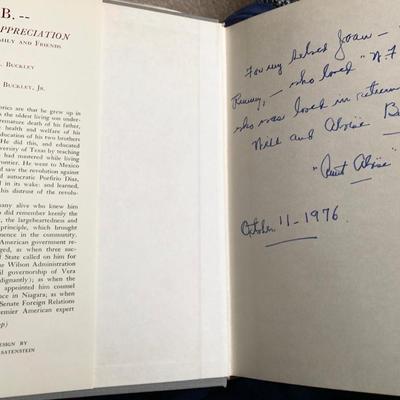 B. --
APPRECIATION
MILY AND FRIENDS
. BUCKLEY
BUCKLEY, JR.
orics are that he grew up in
the oldest living son under-
remature death of his father,
health and welfare of his
education of his two brothers
He did this, and educated
versity of Texas by teaching
had mastered while living
rontier. He went to Mexico
d saw the revolution against
d autocratic Porfirio Diaz,
d in its wake: and learned,
his distrust of the revolu-
any alive who knew him
o did remember keenly the
, the largeheartedness and
principle, which brought
inence in the community.
American government re-
ged, as when three suc-
f State called on him for
he Wilson Administration
il governorship of Vera
dignantly); as when the
appointed him counsel
nce in Niagara; as when
Senate Foreign Relations
remier American expert
p)
DESIGN BY
SATENSTEIN
For my beloved Joan —
— who loved "A.F
who was loved in return
Will and Aloise B
"Aunt Aloise"
October 11 - 1976